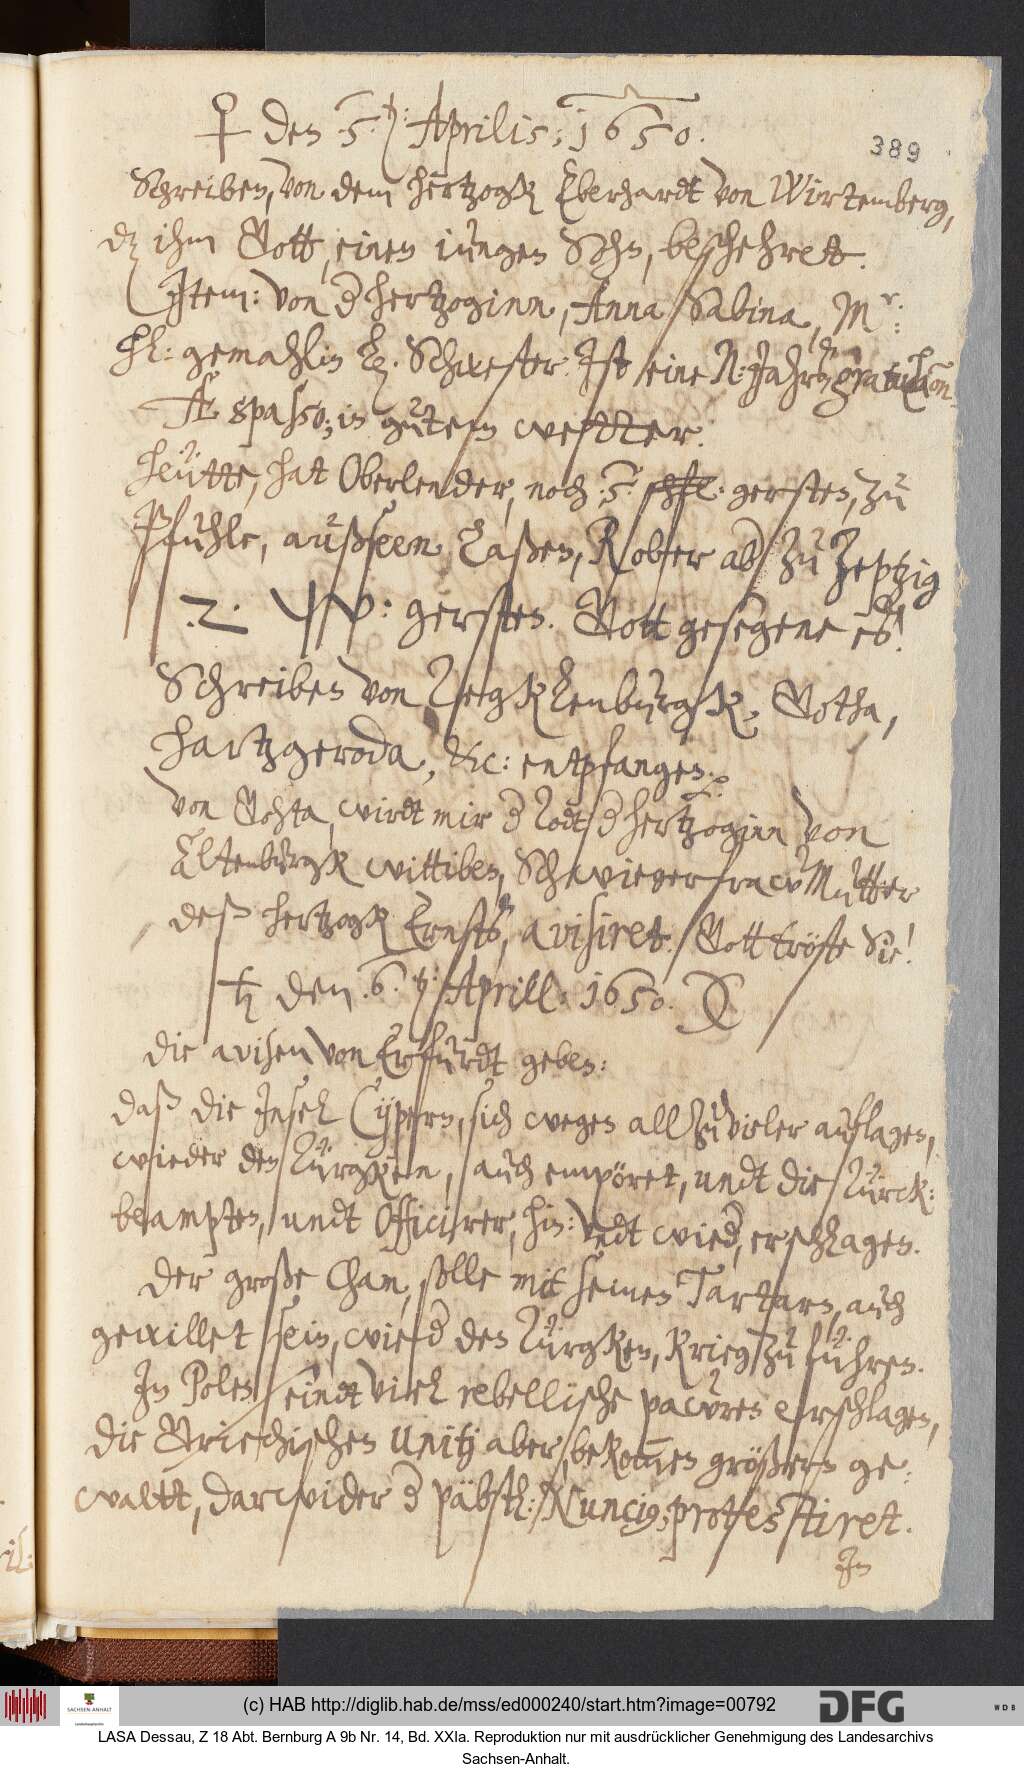 ♀ den 5. Aprilis; 1650.
389
Schreiben, von dem Hertzogk Eberhardt von Wirtemberg,
dz ihm Gott, einen iungen Sohn, beschehret.
Item: von d hertzoginn, Anna Sabina, Mr:
hl: gemahlin Schwester. Ist eine N: Jahrs gratulation.
A spasso; in gutem wettter.
Heütte, hat Oberlender, noch .5. gersten, zu
Pfuhle, außseen laßen, Rober ab zu Zeptzig
.2. W: gersten. Gott gesegene es!
Schreiben von Gotha,
Hartzgeroda, etc: entpfangen.
von Gohta, wirdt mir d Todt d hertzoginn von
Altenburgk wittiben, Schwiegerfraw Mutter
deß hertzogk Ernsts, avisiret. Gott tröste Sie!
♄ den .6. Aprill: 1650.
die avisen von Erffurdt geben:
daß die Insel Cypern, sich wegen all zu vieler auflagen,
wieder den Türgken, auch empöret, undt die Türck:
beampten, undt Officirer, hin: undt wied, erschlagen.
Der große Cham, solle mit seinen Tartarn, auch
gewillet sein, wied den Türgken, Krieg zu führen.
In Polen seindt viel rebellische pawren erschlagen,
die Griechischen Uniti aber, bekommen größern ge:
waltt, darwider d päbstl: Nuncius; protestiret.
In
(c) HAB http://diglib.hab.de/mss/ed000240/start.htm?image=00792
DFG
WDB
SACHSEN-ANHALT
LASA Dessau, Z 18 Abt. Bernburg A 9b Nr. 14, Bd. XXIa. Reproduktion nur mit ausdrücklicher Genehmigung des Landesarchivs
Sachsen-Anhalt.